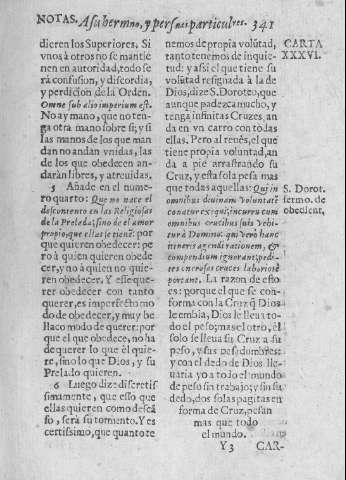 NOTAS. A su hermno, y persnas particulres. 341
dieren los Superiores. Si
vnos à otros no se mantie
nen en autoridad, todo se
rà confusion, y discordia,
y perdicion de la Orden.
Omne sub alio imperium est.
No ay mano, que no ten-
ga otra mano sobre si; y si
las manos de los que man
dan no andàn vnidas, las
de los que obedecen an-
daràn libres, y atreuidas.
5 Añade en el nume-
ro quarto: Que no nace el
descontento en las Religiosas
de la Prelada; sino de el amor
propio, que ellas se tienē: por
que quieren obedecer: pe
ro à quien quieren obede
cer, y no à quien no quie-
ren obedecer. Y esse que-
rer obedecer con tanto
querer, es imperfectismo
do de obedecer, y muy be
llaco modo de querer: por
que el que obedece, no ha
de querer lo que èl quie-
re, sino lo que Dios, y su
Prelado quieren.
6 Luego dize discretis
simamente, que esso que
ellas quieren como descā
so, serà su tormento. Y es
certissimo, que quanto te
nemos de propia volūtad,
tanto tenemos de inquie-
tud: y assi el que tiene su
volūtad resignada à la de
Dios, dize S. Doroteo, que
aunque padezca mucho, y
tenga infinitas Cruzes, an
da en vn carro con todas
ellas. Pero al renès, el que
tiene propia voluntad, an
da à piè arrastrando su
Cruz, y esta sola pesa mas
que todas aquellas: Qui in
omnibus diuinam voluntatē
conatur exqui; incurru cum
omnibus crucibus suis vehi-
tur à Domino: qui verò hanc
itineris agendi rationem, &
compendium ignorant; pedi-
tes enerosas cruces laboriosè
portant. La razon de esto
es: porque el que se con-
forma con la Cruz q̄ Dios
le embia, Dios le lleua to-
do el peso; mas el otro, èl
solo se lleua su Cruz a su
peso, y sus pesidumbres:
y con el dedo de Dios lle-
uaria yo a todo el mundo
de peso sin trabajo; y sin su
dedo, dos solas pagitas en
forma de Cruz, pesan
mas que todo
el mundo.
CARTA
XXXVI.
S. Dorot.
sermo. de
obedient.
Y 3 CAR-